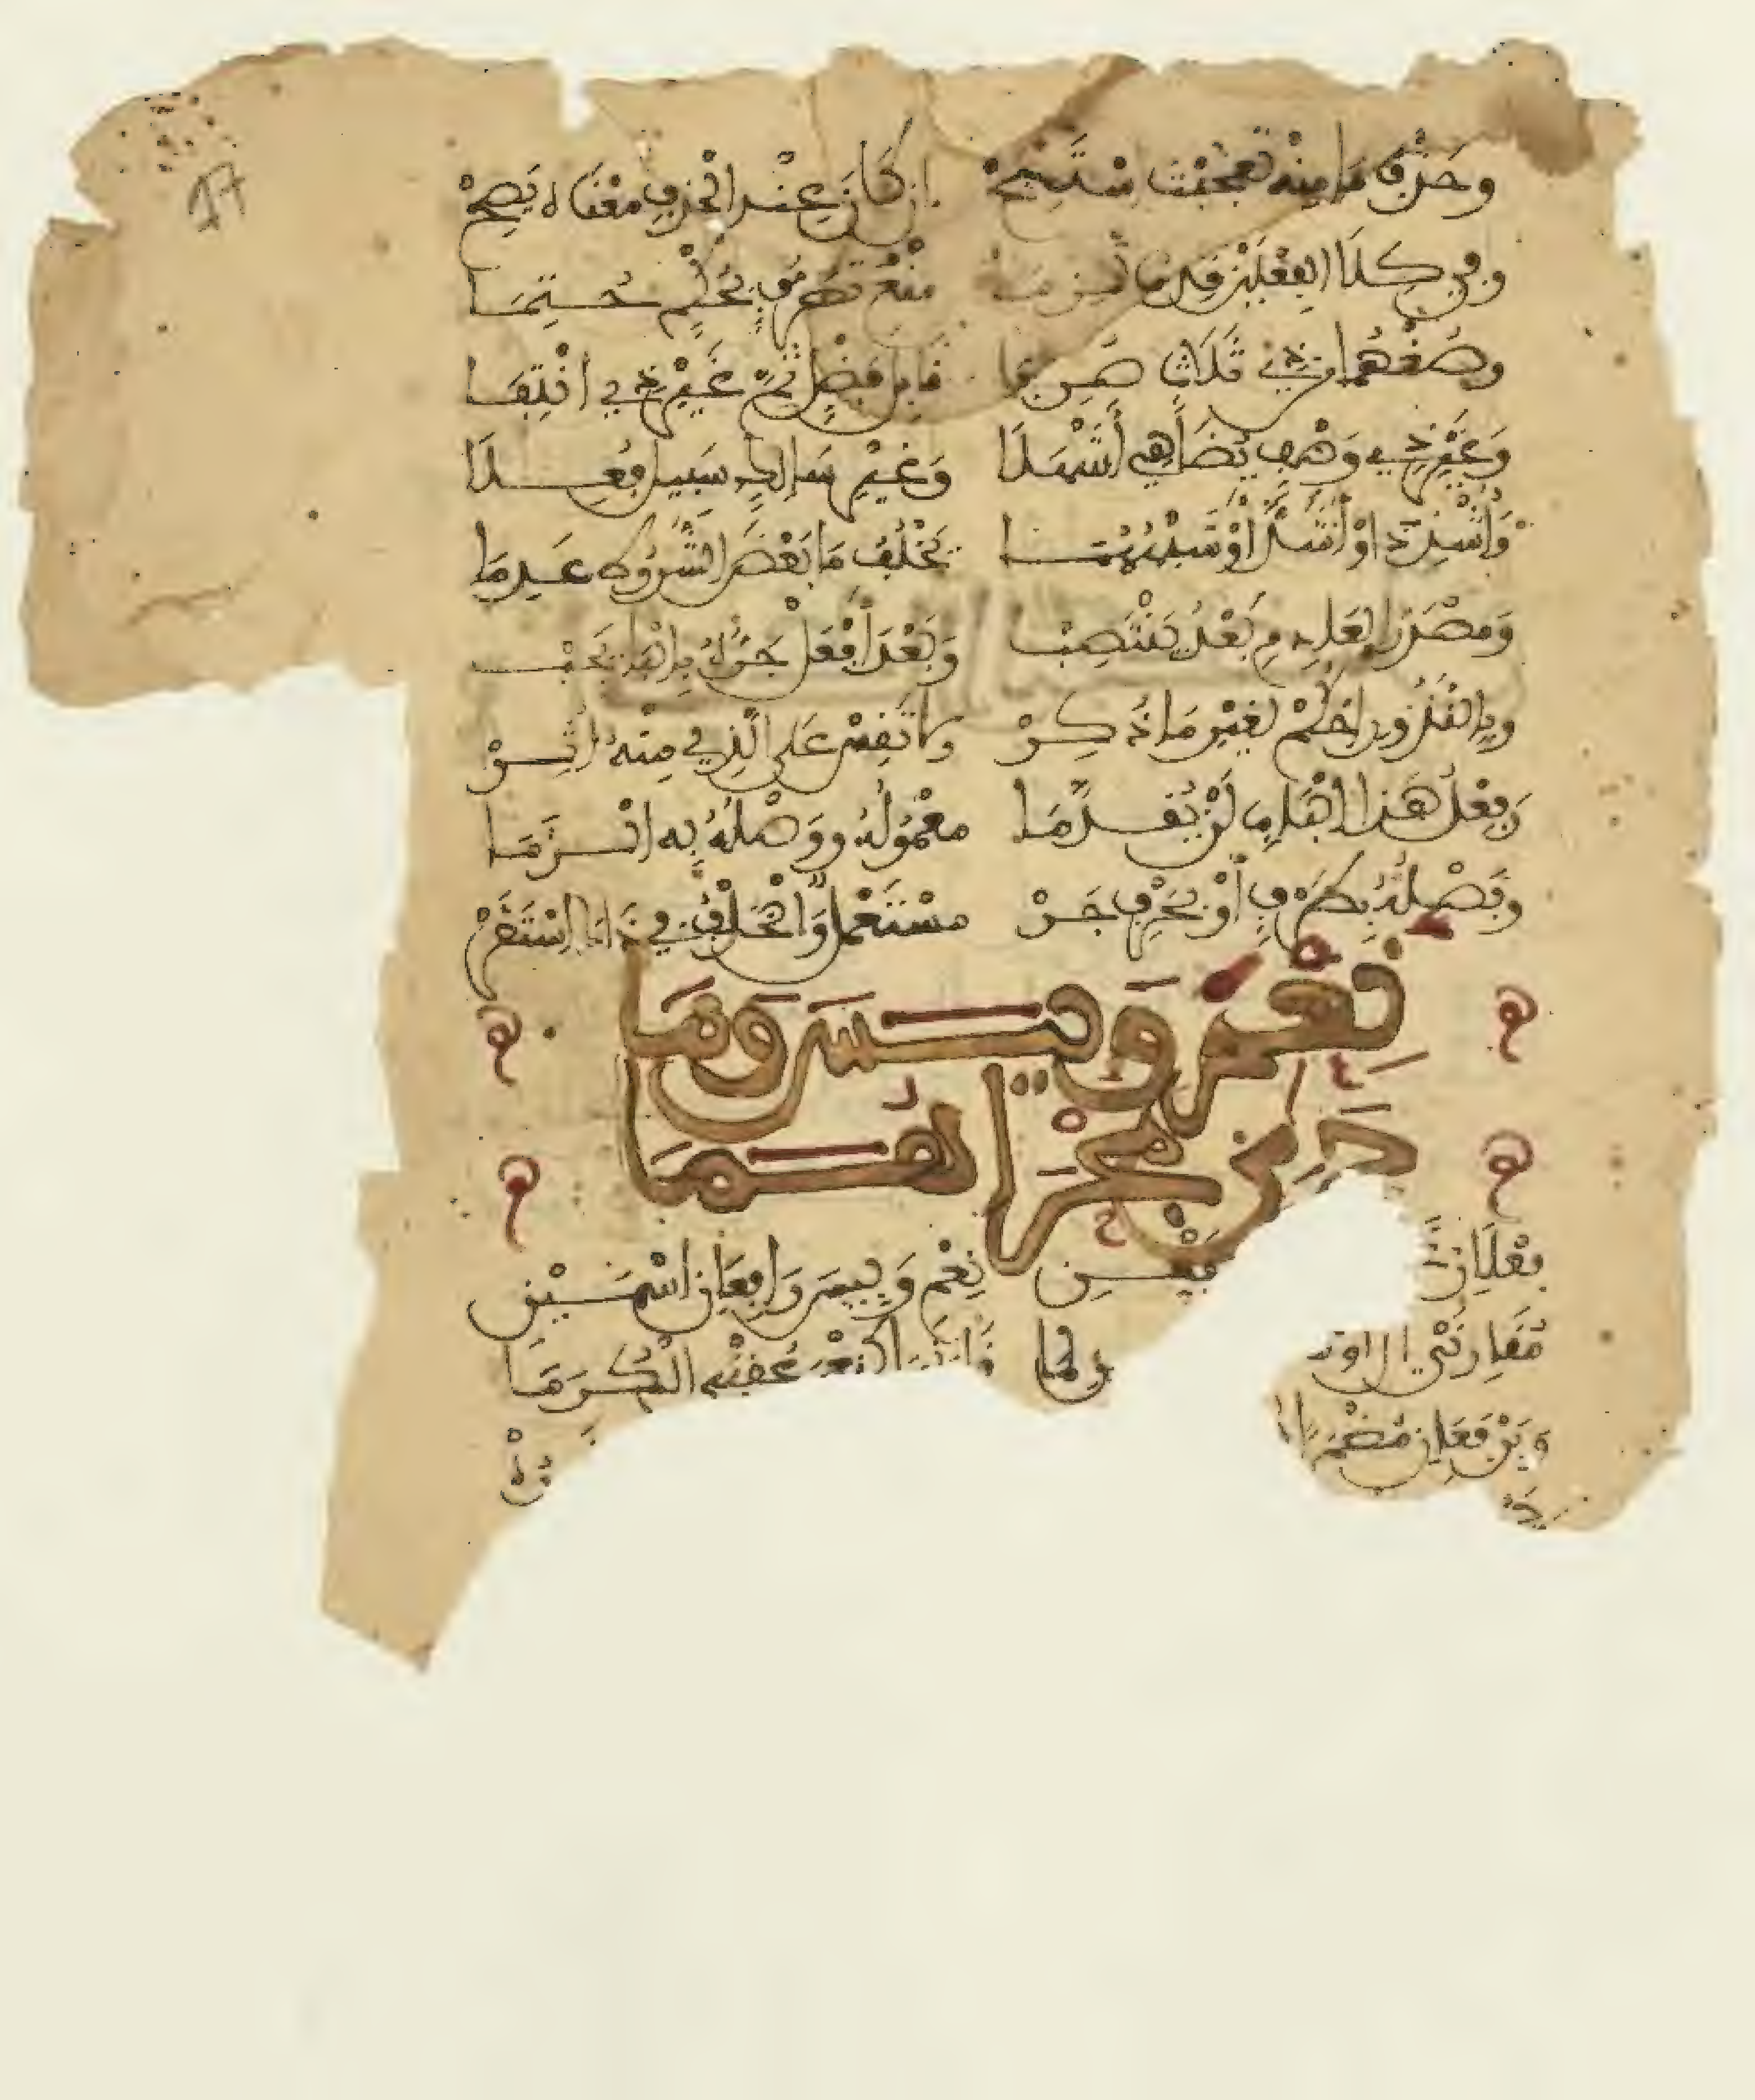 وَحَذْفَ مَا مِنْهُ تَعَجَّبْتَ اسْتَبِحْ إِنْ كَانَ عِنْدَ الْحَذْفِ مَعْنَاهُ يَصِحْ
وَفِي كِلَا الْفِعْلَيْنِ قِدْمًا لَزِمَا مَنْعُ تَصَرُّفٍ بِحُكْمٍ حُتِمَا
وَصُغْهُمَا مِنْ ذِي ثَلَاثٍ صُرِّفَا قَابِلِ فَضْلٍ تَمَّ غَيْرِ ذِي انْتِفَا
وَغَيْرِ ذِي وَصْفٍ يُضَاهِي أَشْهَلَا وَغَيْرِ سَالِكٍ سَبِيلَ فُعِلَا
وَأَشْدِدْ أَوْ أَشَدَّ أَوْ شِبْهُهُمَا يَخْلُفُ مَا بَعْضَ الشُّرُوطِ عَدِمَا
وَمَصْدَرُ الْعَادِمِ بَعْدُ يَنْتَصِبْ وَبَعْدَ أَفْعِلْ جَرُّهُ بِالْبَا يَجِبْ
وَبِالنُّدُورِ احْكُمْ لِغَيْرِ مَا ذُكِرْ وَلَا تَقِسْ عَلَى الَّذِي مِنْهُ أُثِرْ
وَفِعْلُ هَذَا الْبَابِ لَنْ يُقَدَّمَا مَعْمُولُهُ وَوَصْلُهُ بِهِ الْزَمَا
وَفَصْلُهُ بِظَرْفٍ أَوْ بِحَرْفِ جَرْ مُسْتَعْمَلٌ وَالْخُلْفُ فِي ذَاكَ اسْتَقَرْ
نِعْمَ وَبِيسَ وَمَا
جَرَى مَجْرَاهُمَا
فِعْلَانِ نِعْمَ وَبِيسَ رَافِعَانِ اسْمَيْنِ
مُقَارِنَيْ الْ أَوْ لِمَا قَارَنَهَا كَنِعْمَ عُقْبَى الْكُرَمَا
وَيَرْفَعَانِ مُضْمَرًا